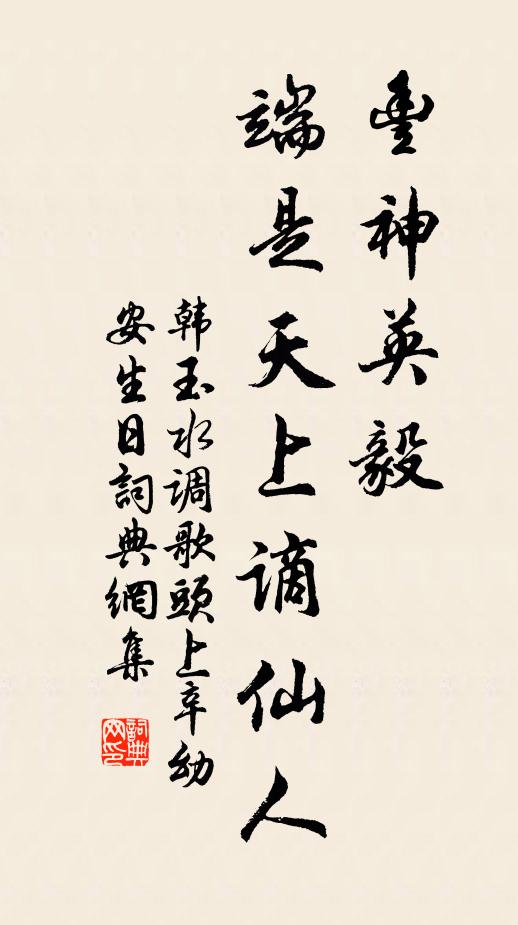 豐神英毅
端是天上謫仙人
韩玉水调歌頭上辛幼
安生日詞典網集
詞典网印